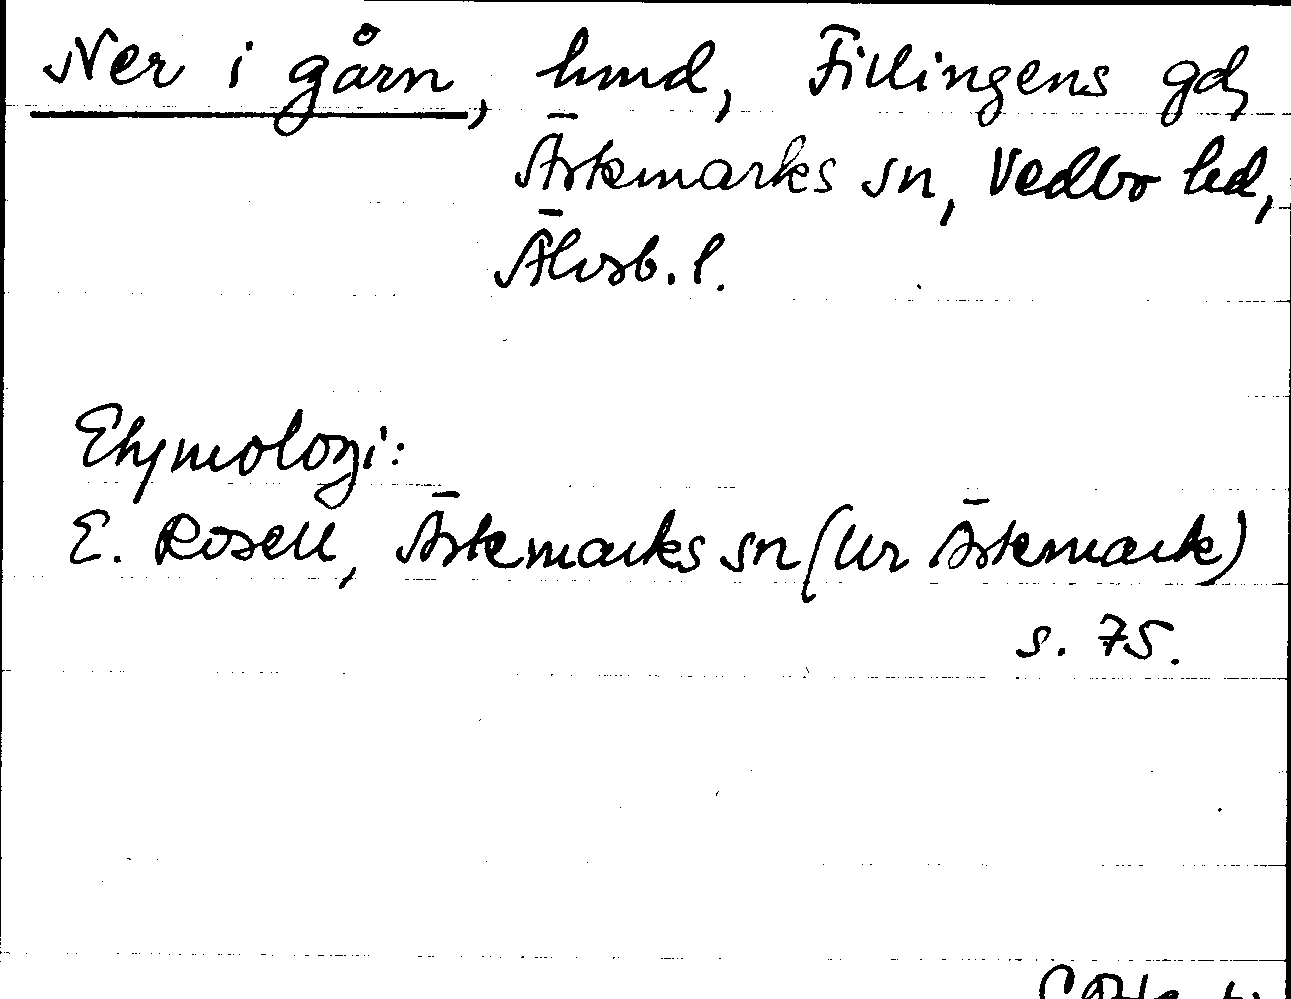 Ner i gårn, hmd, Fillingens gd,
Ärtemarks sn, Vedbo hd,
Älvsb. l.
Etymologi:
E. Rosell, Ärtemarks sn (ur Ärtemark)
s. 75.